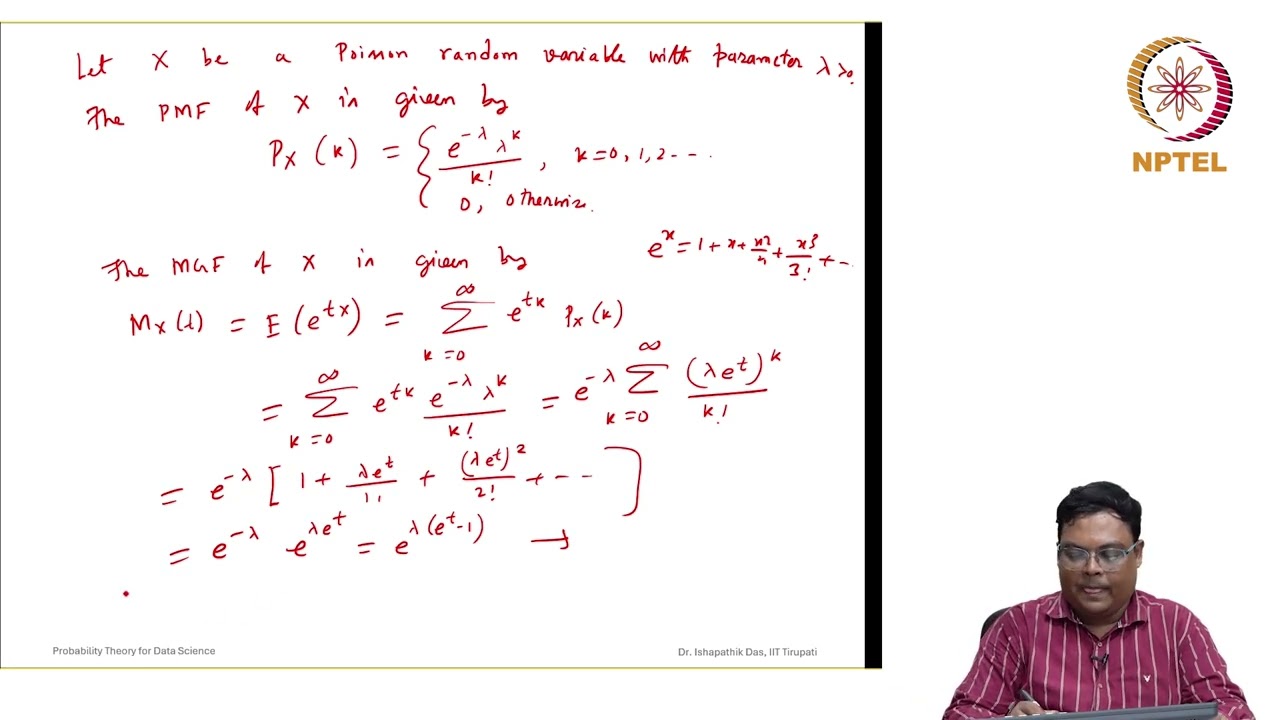 Let X be a Poisson random variable with parameter λ>0.
The PMF of X is given by
P_X (k) = { e^{-λ} λ^k / k! , k=0, 1, 2 - - .
0, otherwise.
e^x = 1 + x + x^2/2 + x^3/3! + - .
The MGF of X is given by
M_X(t) = E(e^{tX}) = ∑_{k=0}^{∞} e^{tk} P_X(k)
= ∑_{k=0}^{∞} e^{tk} e^{-λ} λ^k / k! = e^{-λ} ∑_{k=0}^{∞} (λe^t)^k / k!
= e^{-λ} [ 1 + λe^t / 1! + (λe^t)^2 / 2! + - - ]
= e^{-λ} e^{λe^t} = e^{λ(e^t-1)} →
Probability Theory for Data Science
Dr. Ishapathik Das, IIT Tirupati
NPTEL